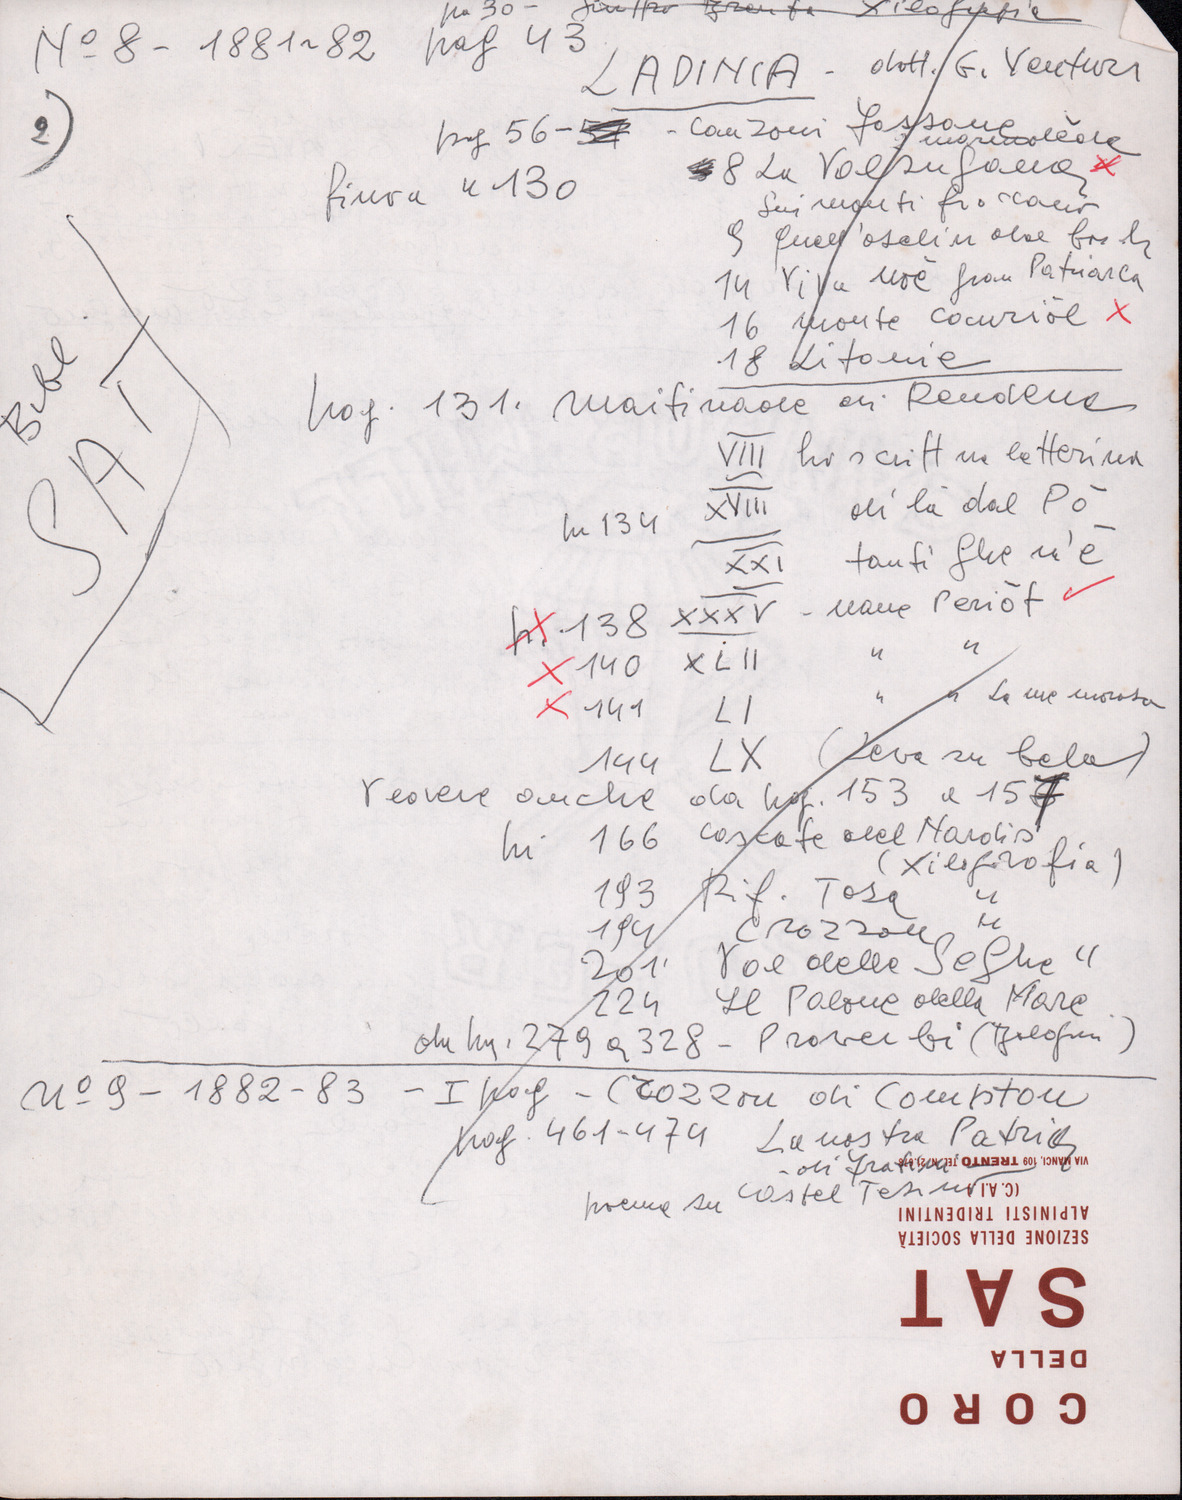 pag 30 - gruppo Brenta Xilografia
Nº 8 - 1881-82 pag 43
LADINIA - dott. G. Venturi
2)
pag 56- - canzoni Fassane
8 La Valsugana x
finora a 130
sui monti
9 quell'oselin del bosch
14 Viva Noè gran Patriarca
16 monte Camriòl x
18 Litanie
Bibl.
SAT
pag. 131. Maitinade di Rendena
VIII ho scritt na letterina
XVIII di là dal Pò
pg 134
XXI tanti ghe n'è
x 138 XXXV - nane Periòt
x 140 XLII " "
x 141 LI " " La me morosa
144 LX (leva su bela)
vedere anche da pag. 153 a 157
pg 166 cascate del Nardis
(Xilografia)
193 Rif. Tosa "
194 Crozzon "
201 Val delle Seghe "
224 Il Palone della Mare
da pag. 279 a 328 - Proverbi (Bologni)
Nº 9 - 1882-83 - I pag - Crozzon di
pag. 461-474 La nostra Patria
poema su Castel Tesino
CORO
DELLA
SAT
SEZIONE DELLA SOCIETÀ
ALPINISTI TRIDENTINI
(C.A.I.)
VIA MANCI, 109 TRENTO